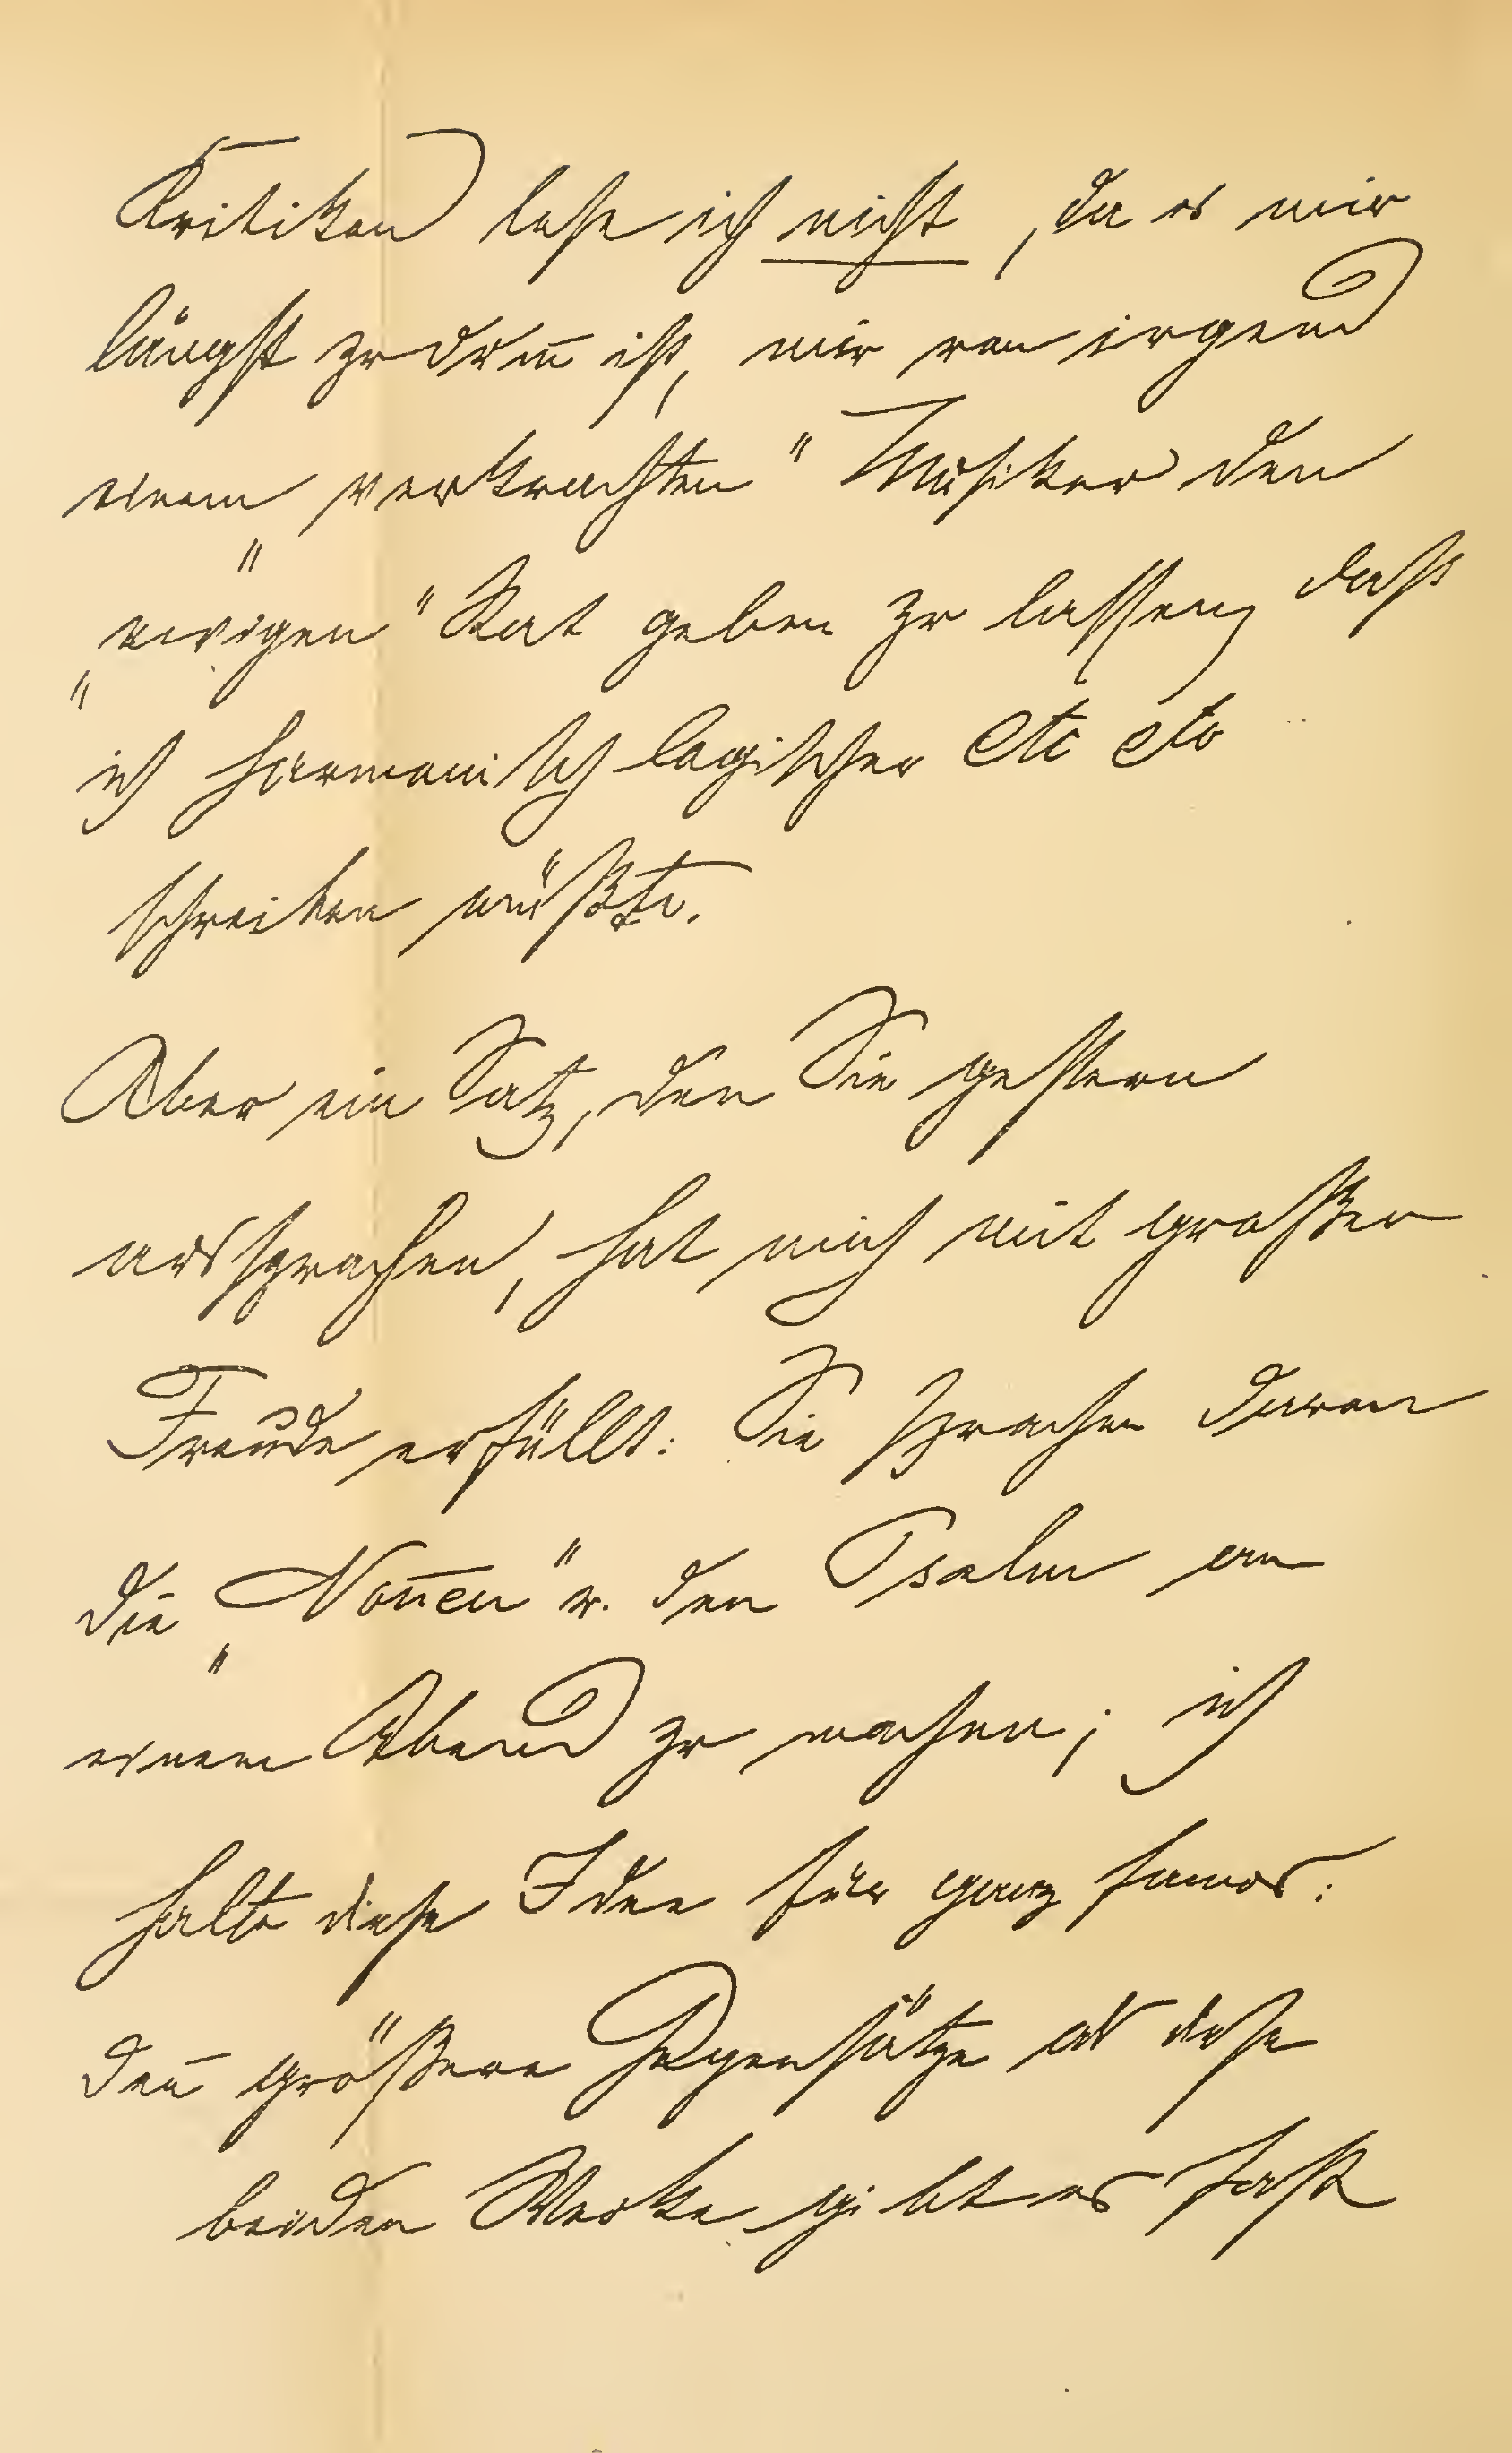 Kritiken lese ich nicht, da es mir
längst zu dum̄ ist, mir von irgend
einem „verkrachten" Musiker den
„ewigen" Rat geben zu lassen, daß
ich harmonisch logischer etc etc
schreiben müßte.
Aber ein Satz, den Sie gestern
aussprachen, hat mich mit großer
Freude erfüllt: Sie sprachen davon
die „Non̄en" u. den Psalm an
einem Abend zu machen; ich
halte diese Idee für ganz famos:
den̄ größere Gegensätze als diese
beiden Werke gibt es fast